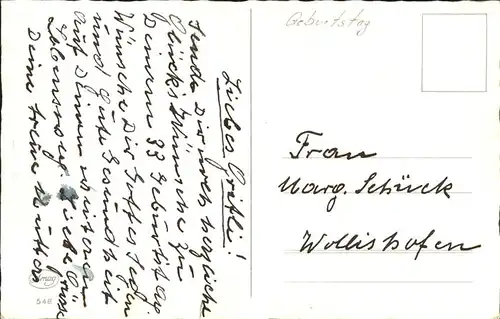 Geburtstag
Liebes Gretli!
Sende Dir noch herzliche
Glücks Wünsche zu
Deinem 33 Geburtstag
Wünsche Dir Gottes Segen
und Gute Gesundheit
auf Deinem weiteren
Lebensweg Liebe Grüsse
Deine treue Mutter
Frau
Marg. Schück
Wollishofen
546